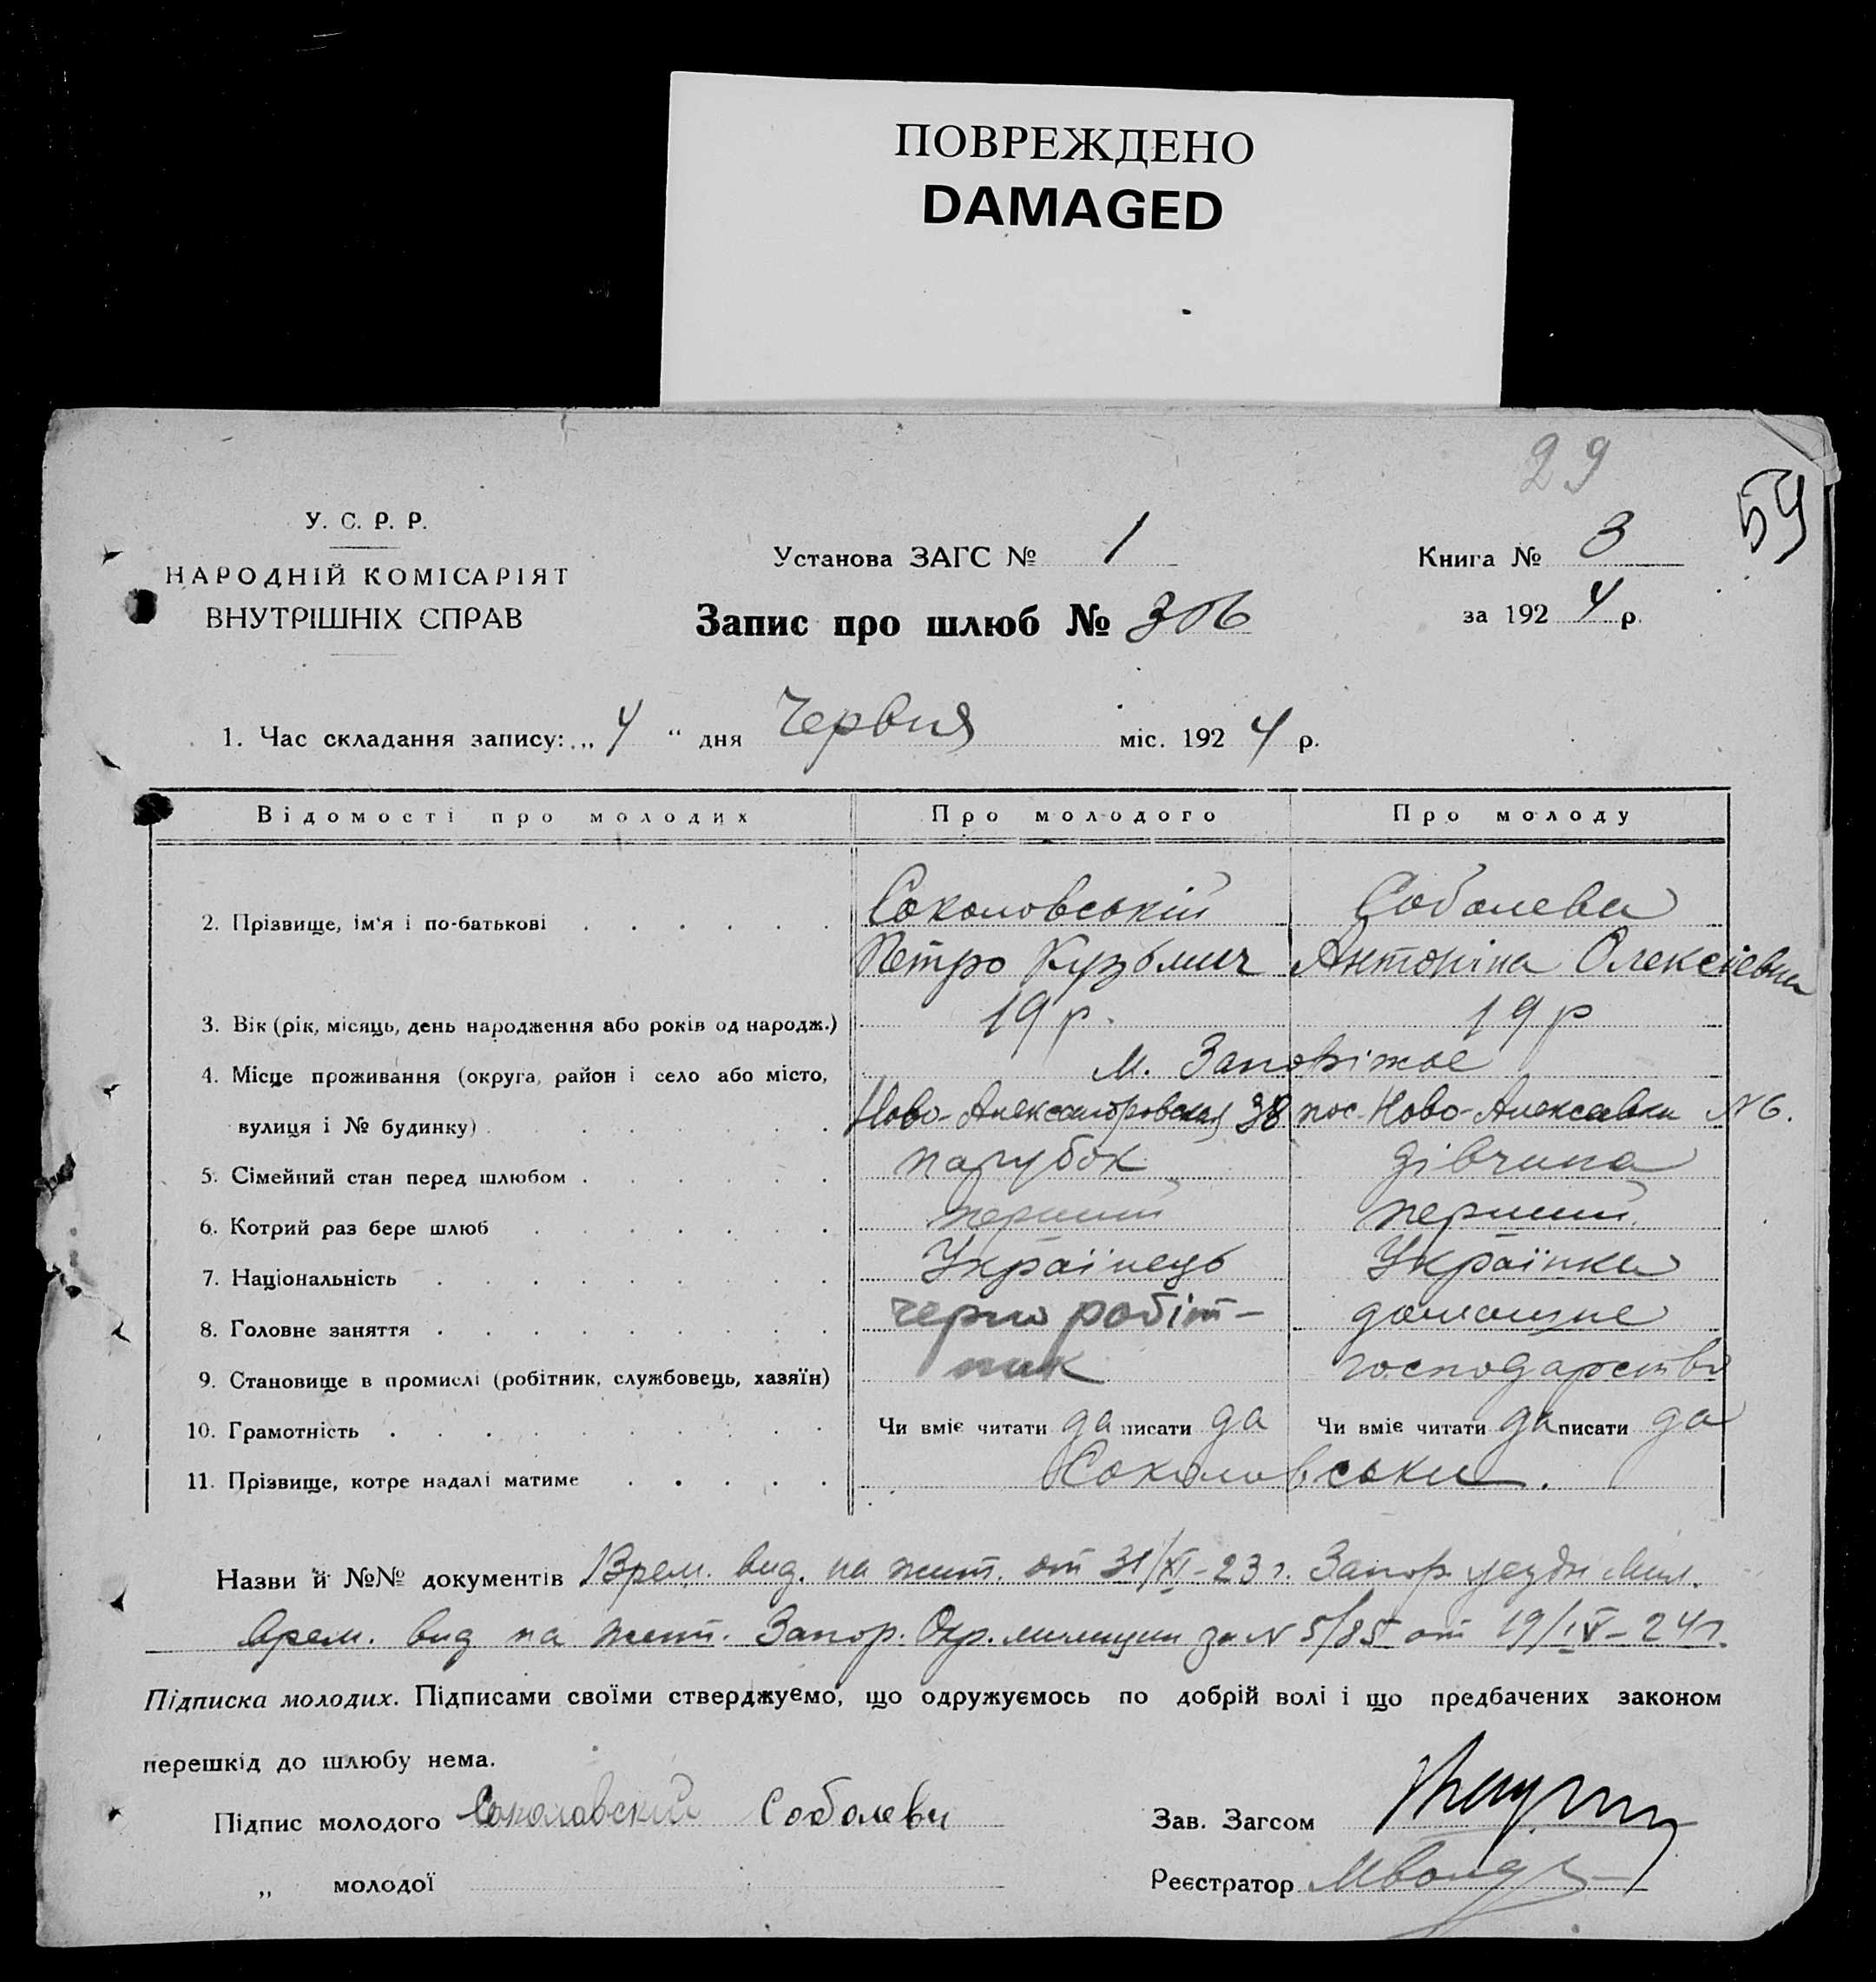 ПОВРЕЖДЕНО
DAMAGED
29
59
У. С. Р. Р.
НАРОДНІЙ КОМІСАРІЯТ
ВНУТРІШНІХ СПРАВ
Установа ЗАГС № 1
Запис про шлюб № 306
Книга № 3
за 1924 р.
1. Час складання запису: „4“ дня Червня міс. 1924 р.
Відомості про молодих Про молодого Про молоду
2. Прізвище, ім'я і по-батькові Соколовській Соболева
Петро Кузьмич Антоніна Олексієвна
3. Вік (рік, місяць, день народження або років од народж.) 19 р. 19 р
4. Місце проживання (округа, район і село або місто, м. Запоріжье
вулиця і № будинку) Ново-Александровская 38 пос. Ново-Алексеевка N 6.
5. Сімейний стан перед шлюбом парубок дівчина
6. Котрий раз бере шлюб перший перший
7. Національність Українець Українка
8. Головне заняття чернороbіт- домашне
9. Становище в промислі (робітник, службовець, хазяїн) ник господарство
10. Грамотність Чи вміє читати да писати да Чи вміє читати да писати да
11. Прізвище, котре надалі матиме Соколовськи.
Назви й №№ документів Врем. вид. на жит. от 31/XI-23 г. Запор. уездн. Мил.
Врем. вид на жит. Запор. Окр. милиции за N 5/85 от 19/IV-24 г.
Підписка молодих. Підписами своїми стверджуємо, що одружуємось по добрій волі і що предбачених законом
перешкід до шлюбу нема.
Підпис молодого Соколовский Соболева Зав. Загсом
„ молодої Реєстратор